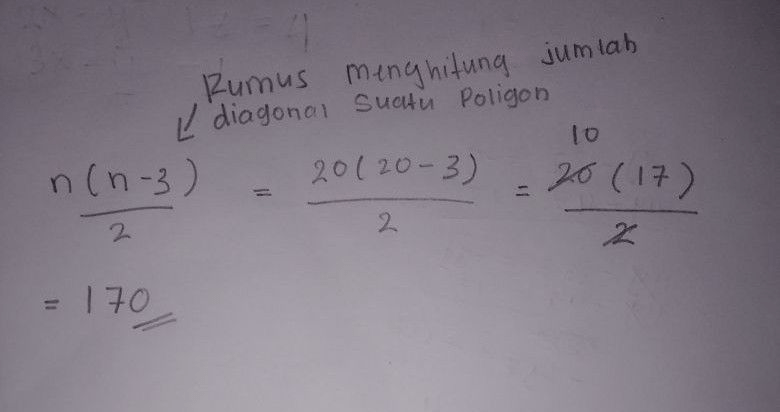 Rumus menghitung jumlah
diagonal Suatu Poligon
n(n-3)/2 = 20(20-3)/2 = 20(17)/2 10
= 170